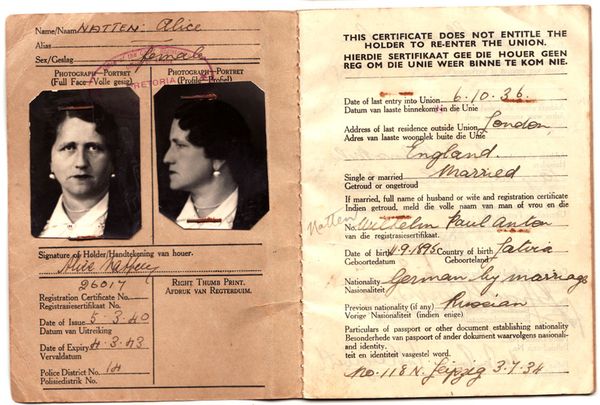 Name/Naam NATTEN: Alice
Alias
Sex/Geslag female
PRETORIA
PHOTOGRAPH-PORTRET
(Full Face-Volle gesig)
PHOTOGRAPH-PORTRET
(Profile-Profiel)
Signature of Holder/Handtekening van houer.
Alice Natten
26017
Registration Certificate No.
Registrasiesertifikaat No.
Date of Issue 5-3.40
Datum van Uitreiking
Date of Expiry 4.3.43
Vervaldatum
Police District No. 14
Polisiedistrik No.
RIGHT THUMB PRINT.
AFDRUK VAN REGTERDUIM.
THIS CERTIFICATE DOES NOT ENTITLE THE
HOLDER TO RE-ENTER THE UNION.
HIERDIE SERTIFIKAAT GEE DIE HOUER GEEN
REG OM DIE UNIE WEER BINNE TE KOM NIE.
Date of last entry into Union 6.10.36.
Datum van laaste binnekoms in die Unie
Address of last residence outside Union London,
Adres van laaste woonplek buite die Unie
England.
Single or married Married
Getroud of ongetroud
If married, full name of husband or wife and registration certificate
Indien getroud, meld die volle naam van man of vrou en die
Natten
No. Wilhelm Paul Anton
van die registrasiesertifikaat.
Date of birth 4.9.1895 Country of birth Latvia
Geboortedatum Geboorteland
Nationality German by marriage
Nasionaliteit
Previous nationality (if any) Russian
Vorige Nasionaliteit (indien enige)
Particulars of passport or other document establishing nationality
Besonderhede van paspoort of ander dokument waarvolgens nasional-
and identity.
iteit en identiteit vasgestel word.
No. 118 N. Leipzig 3.7.34